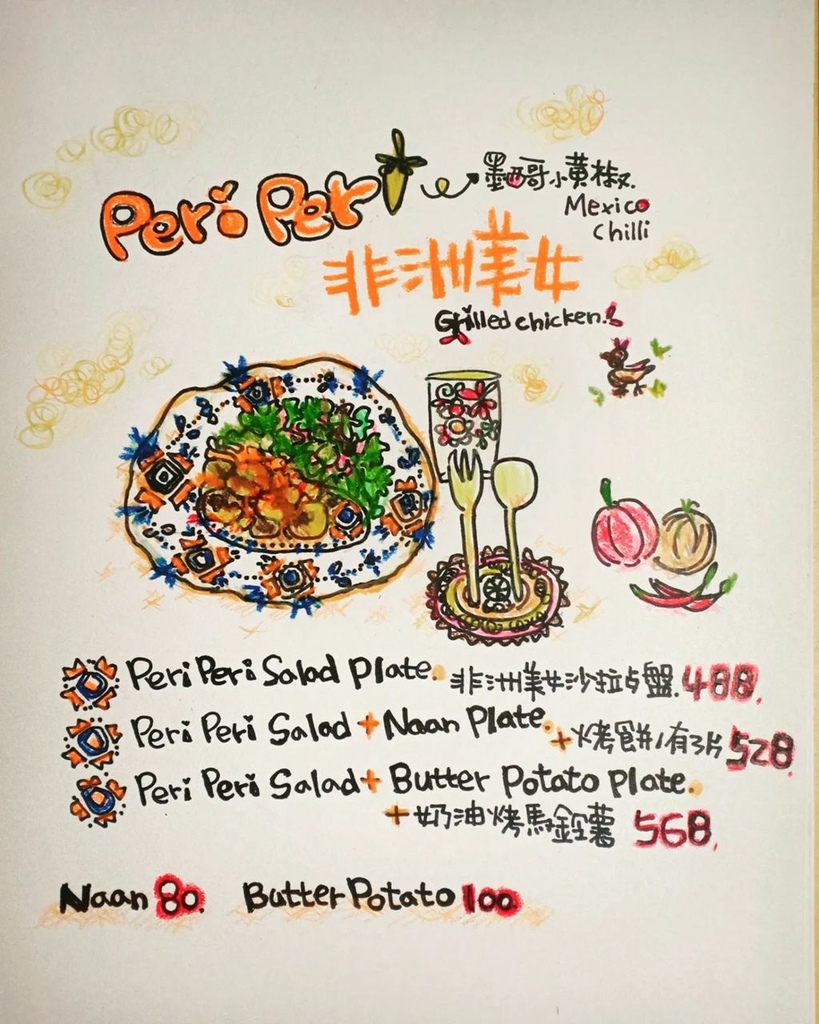 Peri Peri
墨西哥小黃椒.
Mexico
Chilli
非洲美女
Grilled chicken!
Peri Peri Salad Plate. 非洲美女沙拉占盤. 488.
Peri Peri Salad + Naan Plate. + 烤餅/有3片 528.
Peri Peri Salad + Butter Potato Plate.
+ 奶油烤馬鈴薯 568.
Naan 80. Butter Potato 100.